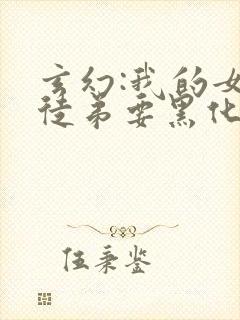 玄幻:我的女
徒弟要黑化
伍秉鉴